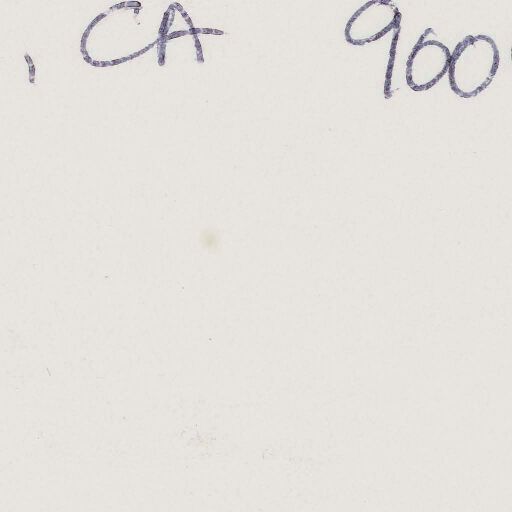 , CA 900